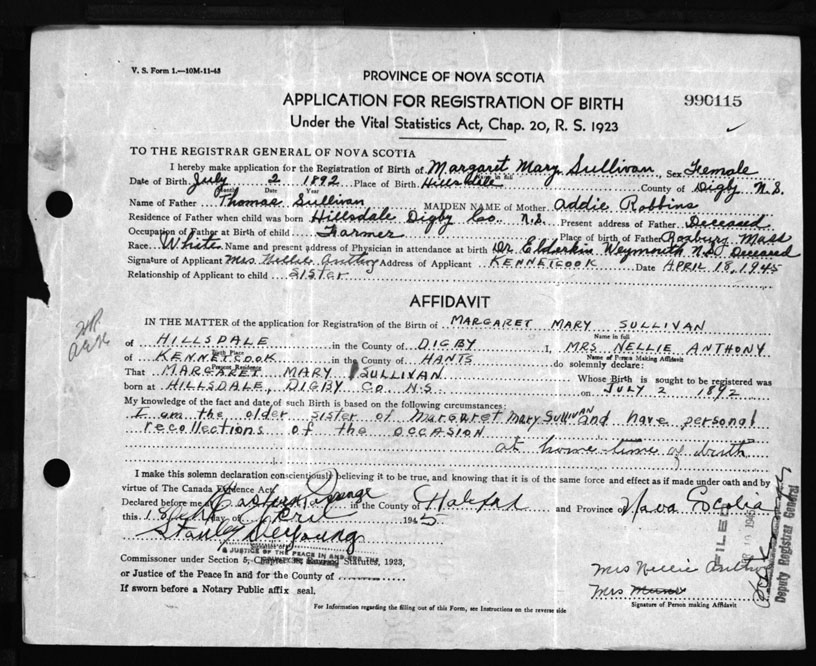 V. S. Form 1.—10M-11-43
PROVINCE OF NOVA SCOTIA
APPLICATION FOR REGISTRATION OF BIRTH
990115
Under the Vital Statistics Act, Chap. 20, R. S. 1923
TO THE REGISTRAR GENERAL OF NOVA SCOTIA
I hereby make application for the Registration of Birth of Margaret Mary Sullivan, Sex Female
Name in full
Date of Birth July 2 1892 Place of Birth Hillsdale County of Digby N.S.
Month Date Year
Name of Father Thomas Sullivan MAIDEN NAME of Mother Addie Robbins
Residence of Father when child was born Hillsdale Digby Co. N.S. Present address of Father Deceased
Occupation of Father at Birth of child Farmer Place of birth of Father Roxbury Mass
Race White Name and present address of Physician in attendance at birth Dr Elderkin Weymouth N.S. Deceased
Signature of Applicant Mrs. Nellie Anthony Address of Applicant KENNETCOOK Date APRIL 18, 1945
Relationship of Applicant to child SISTER
AFFIDAVIT
IN THE MATTER of the application for Registration of the Birth of MARGARET MARY SULLIVAN
Name in full
of HILLSDALE in the County of DIGBY I, MRS NELLIE ANTHONY
Birth Place Name of Person Making Affidavit
of KENNETCOOK in the County of HANTS do solemnly declare:
Present Residence
That MARGARET MARY SULLIVAN Whose Birth is sought to be registered was
born at HILLSDALE, DIGBY CO. N.S. on JULY 2 1892
My knowledge of the fact and date of such Birth is based on the following circumstances:
I am the older sister of Margaret Mary Sullivan and have personal
recollections of the occasion
at home time of birth
I make this solemn declaration conscientiously believing it to be true, and knowing that it is of the same force and effect as if made under oath and by
virtue of The Canada Evidence Act.
Declared before me at Eastern Passage in the County of Halifax and Province of Nova Scotia
this 18th day of April 1945
Stanley DeYoung
A JUSTICE OF THE PEACE IN AND FOR THE
Commissioner under Section 5, Chapter Revised Statutes, 1923,
or Justice of the Peace In and for the County of
If sworn before a Notary Public affix seal.
Mrs Nellie Anthony
Mrs
Signature of Person making Affidavit
For Information regarding the filling out of this Form, see Instructions on the reverse side
FILED
1945
Deputy Registrar General